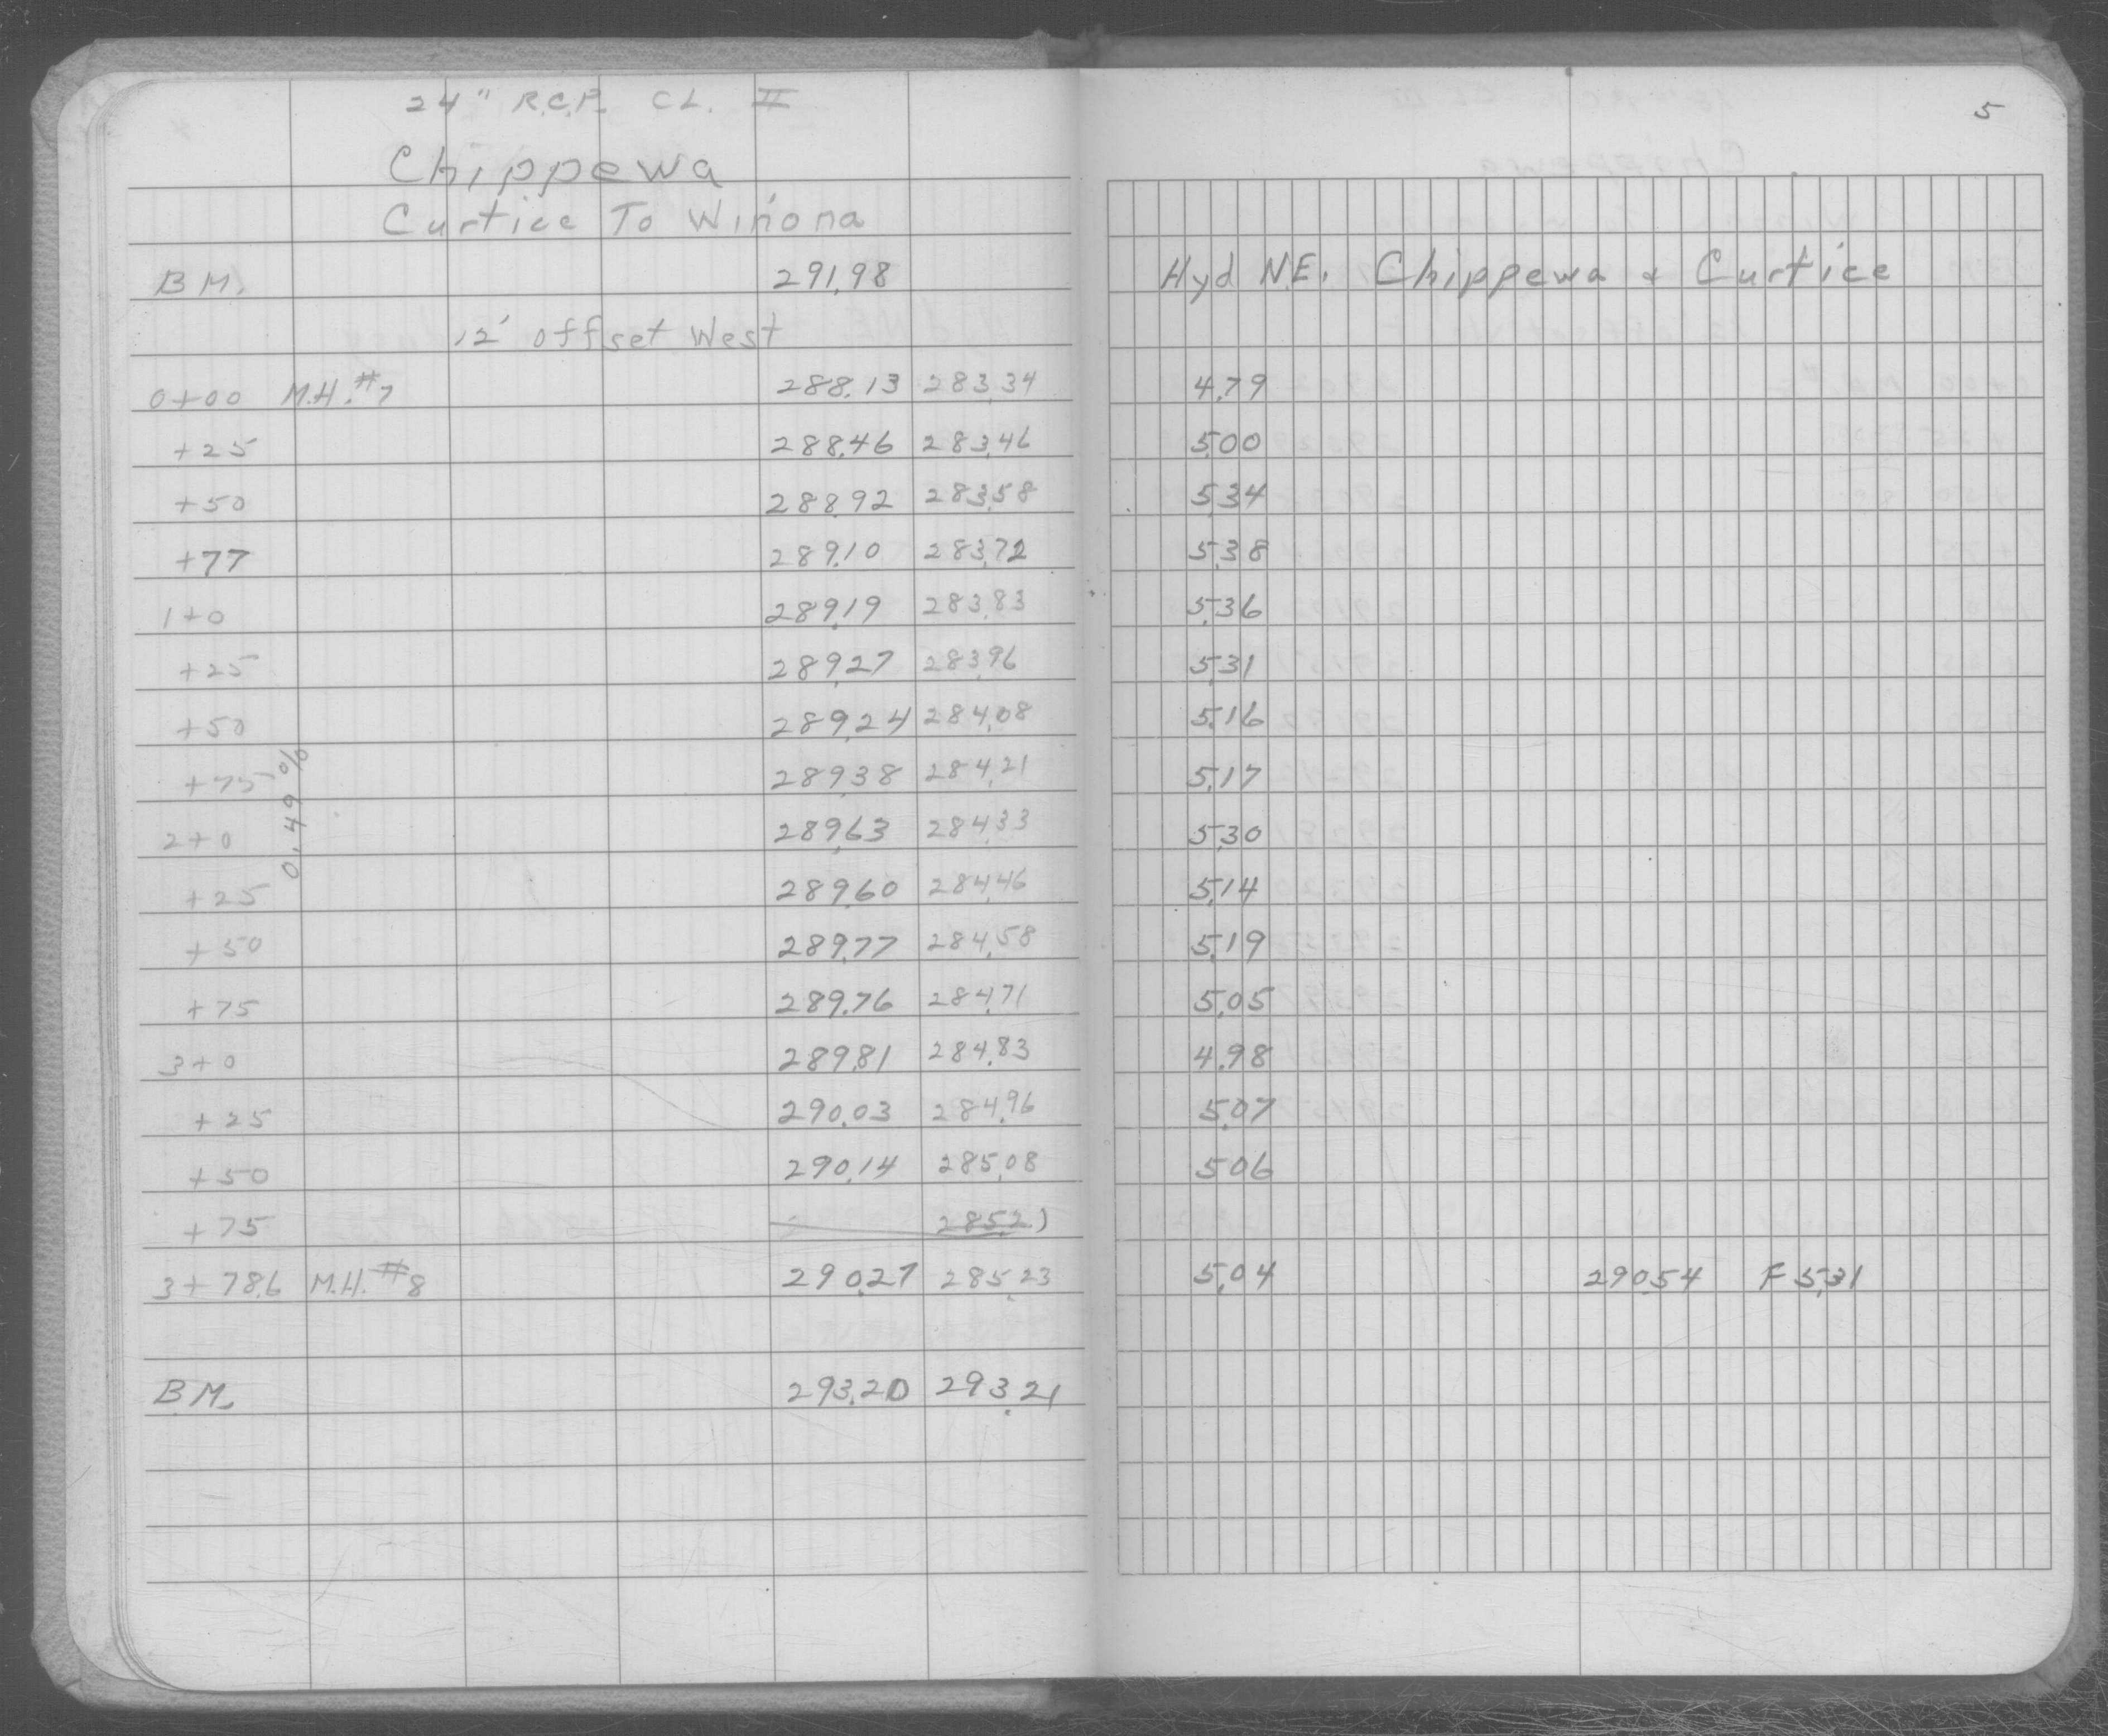 24" R.C.P. CL. II
Chippewa
Curtice To Winona
B M. 291.98 Hyd N.E. Chippewa & Curtice
12' offset West
0+00 M.H.#7 288.13 283.34 4.79
+25 288.46 283.46 5.00
+50 288.92 283.58 5.34
+77 289.10 283.72 5.38
1+0 289.19 283.83 5.36
+25 289.27 283.96 5.31
+50 289.24 284.08 5.16
+75 289.38 284.21 5.17
0.49%
2+0 289.63 284.33 5.30
+25 289.60 284.46 5.14
+50 289.77 284.58 5.19
+75 289.76 284.71 5.05
3+0 289.81 284.83 4.98
+25 290.03 284.96 5.07
+50 290.14 285.08 5.06
+75 285.21
3+78.6 M.H.#8 290.27 285.23 5.04 290.54 F 5.31
B.M. 293.20 293.21
5